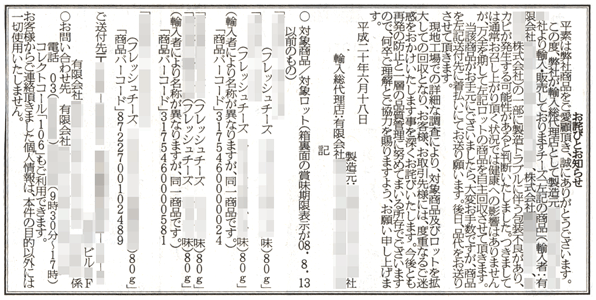 お詫びとお知らせ
平素は弊社商品をご愛顧頂き、誠にありがとうございます。
この度、弊社が輸入総代理店として製造元
社より輸入・販売しておりますチーズ「左記の商品(輸入者：有
株式会社)の一部に製造トラブルにより包装不良があり、
カビが発する可能性があると判断いたしました。つきまして
は通常お召し上がり頂く状況では健康への影響はありません
が、万全を期して左記ロットの商品を自主回収させて頂きます。
当該商品がお手元にございましたら、大変お手数ですが、商品
を下記送付先に着払いにてお送り願います。後日、品代をお送り
させて頂きます。
現地工場では、詳細な調査により、対象商品及びロットを拡
大しての回収となり、お客様、お取引先様には、度重なるご迷
惑をおかけいたします事を深くお詫びいたします。今後とも
再発の防止と一層の品質管理に努めてまいる所存でございます
ので、何卒ご理解とご協力を賜りますよう、お願い申し上げま
す。
平成二十年六月十八日
製造元 社
輸入総代理店 有限会社
記
○対象商品 対象ロット(箱裏面の賞味期限表示が08.8.13
以前のもの)
(フレッシュチーズ 味)80g
「商品バーコード」3175460000024
(輸入者により名称が異なりますが、同一商品です。)
(フレッシュチーズ 味)80g
(フレッシュチーズ 味)80g
「商品バーコード」3175460000581
(輸入者により名称が異なりますが、同一商品です。)
(フレッシュチーズ 80g)
「商品バーコード」8722700102489
ご送付先 〒
ビル F
有限会社 係
○お問い合わせ先 有限会社
電話 03( ) (9時30分〜17時)
コレクトコール「106」もご利用できます。
お客様からご連絡頂きました個人情報は、本件の目的以外には
一切使用いたしません。